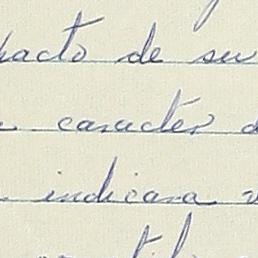 pacto de su
caracter d
indicara v